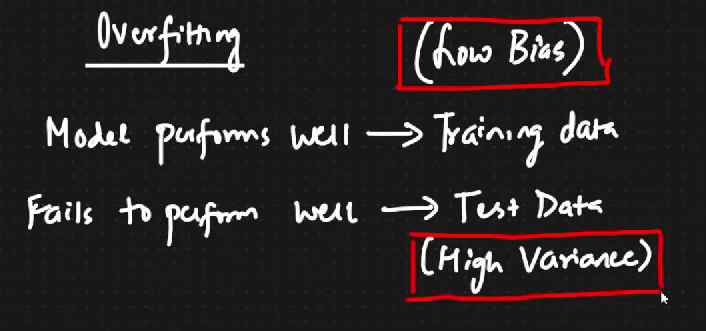 Overfitting (Low Bias)
Model performs well → Training data
Fails to perform well → Test Data
(High Variance)